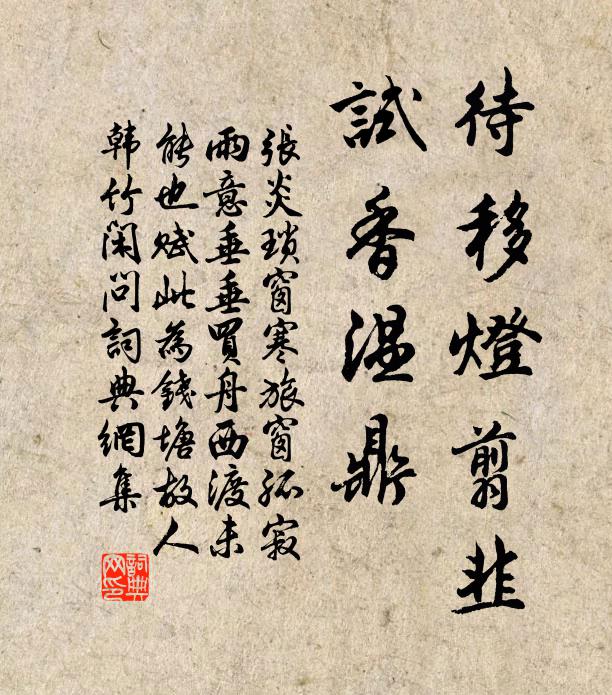 待移燈翦韭
試香溫鼎
張炎瑣窗寒旅窗孤寂
雨意垂垂買舟西渡未
能也賦此為錢塘故人
韩竹閑問詞典網集
詞典
网印